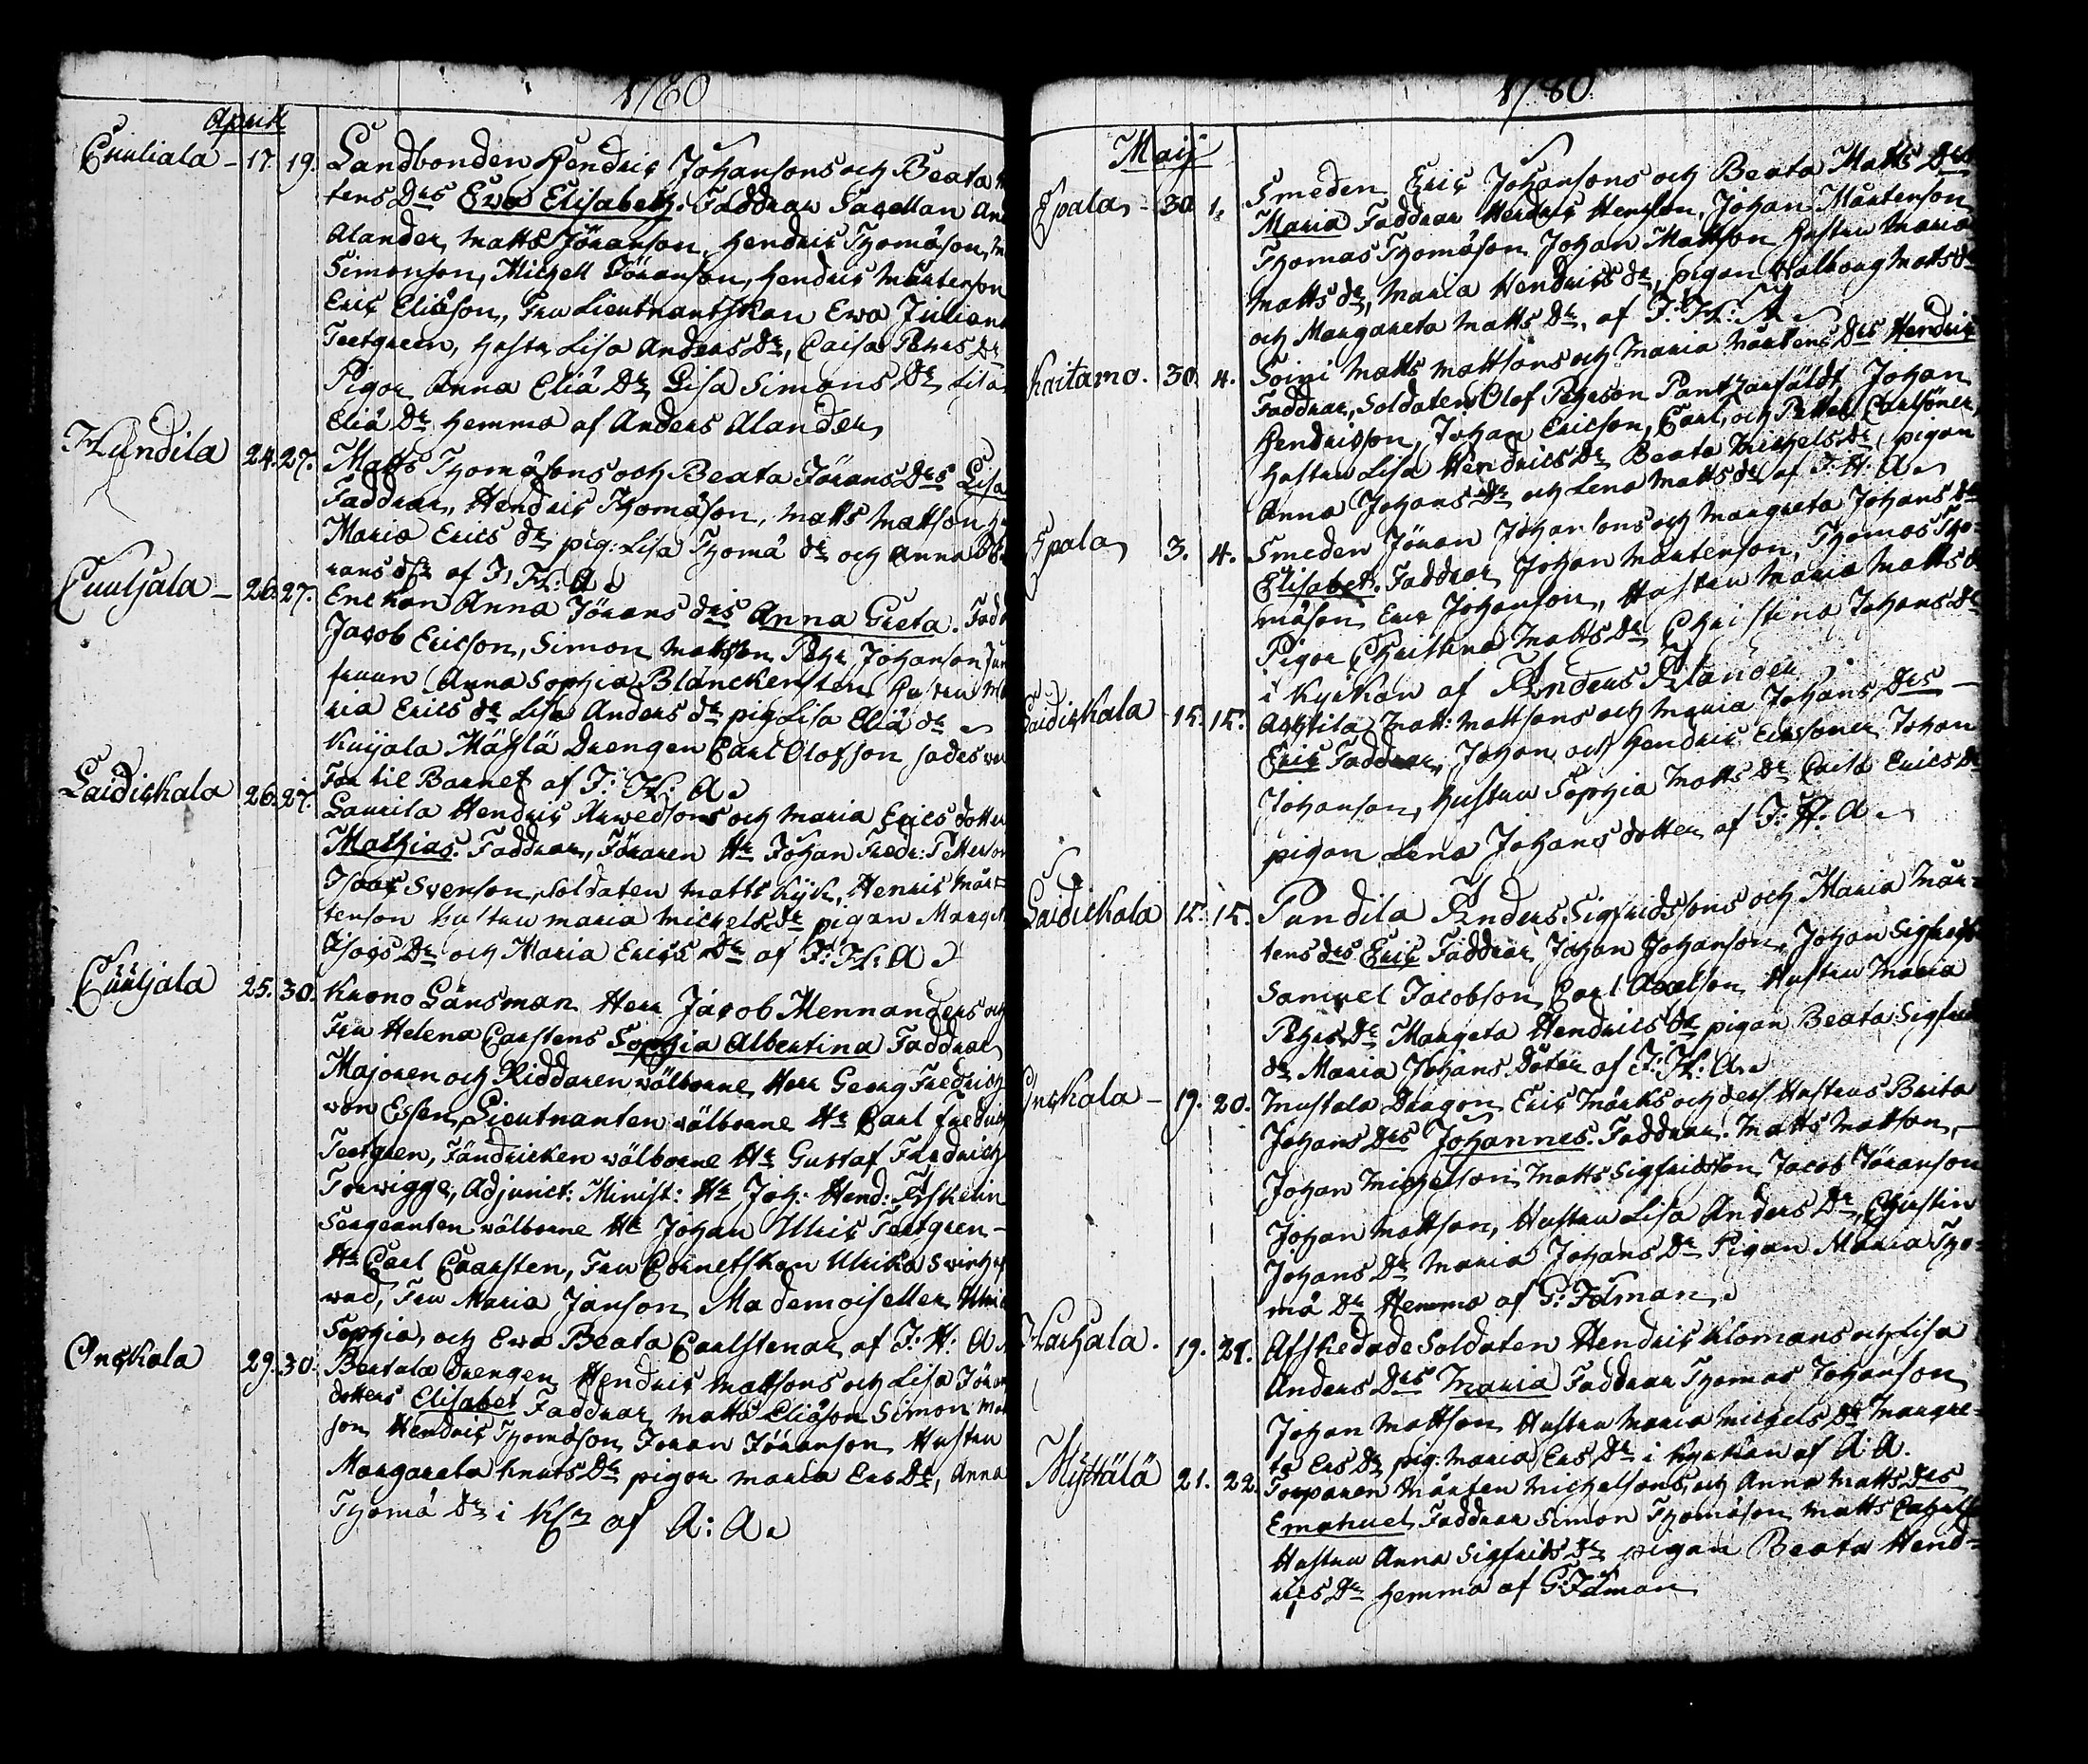 1780
April
Cuuliala - 17. 19. Landbonden Hendric Johansons och Beata
tens Drs Ewa Elisabeth. Faddrar Sacellan And
Alander, Matts Jöranson, Hendric Thomäson,
Simonson, Michell Jöranson, Hendric Mårtenson
Eric Eliäson, Fru Lieutnantskan Ewa Juliana
Teetgreen, Hustr Lisa Anders Dr, Caisa Pehrs Dr
Pigor Anna Eliä Dr Lisa Simons Dr Lisa
Eliä Dr hemma af Anders Alander
Hundila 24. 27. Matts Thomäsons och Beata Jörans Drs Lisa
Faddrar, Hendric Thomäson, Matts Matson
Maria Erics dr pig: Lisa Thomä dr och Anna Jö
rans dr af J: H: A
Cuuljala - 26. 27. Enckan Anna Jörans drs Anna Greta. Fadd
Jacob Ericson, Simon Mattson Pehr Johanson Jun
fruun Anna Sophia Blanckensten Hustru Ma
ria Erics dr Lisa Anders dr pig Lisa Eliä dr
Kuijala Mäkylä Drengen Carl Olofson sades wa
Far til Barnet af J: H: A
Laidickala 26. 27. Laurila Hendric Arwedsons och Maria Erics dotter
Mathias. Faddrar, Föraren Hr Johan Fredr: Petterson
Isaac Svenson, Soldaten Matts Kyk, Henric Mår=
tenson hustru Maria Michels dr pigan Marget
Isacs Dr och Maria Erics Dr af J: H: A
Cuuljala 25. 30. Krono Länsman Herr Jacob Mennanders och
Fru Helena Carstens Sophia Albertina Faddrar
Majoren och Riddaren wälborne Herr Georg Fredrich
von Essen, Lieutnanten wälborne Hr Carl Fredrich
Teetgren, Fändricken wälborne Hr Gustaf Fredrich
Torwigge, Adjunct: Minist: Hr Joh: Hend:
Sergeanten wälborne Hr Johan Ulric Teetgren -
Hr Carl Caarsten, Fru Cornetskan Ulrika Swinhuf
wud, Fru Maria Janson Mademoiseller Ulric
Sophia, och Ewa Beata Carlstenar af J: H: A
Onckala 29. 30. Bertula Drengen Hendric Mattsons och Lisa Jöran
dotters Elisabet Faddrar Matts Eliäson Simon Mat
son Hendric Thomäson Joran Jöranson Hustru
Margareta Knuts Dr pigor Maria Ers Dr, Anna
Thomä Dr i Ksn af A: A
1780
Maij
Epala 30 1. Smeden Eric Johansons och Beata Matts Drs
Maria Faddrar Hendric Henrson, Johan Mårtenson
Thomas Thomäson Johan Mattson hustru Maria
Matts dr, Maria Hendrics dr, pigan Walborg Matts dr
och Margareta Matts Dr. af J: H: A
Kaitamo. 30. 4. Soini Matts Mattsons och Maria Mårtens Drs Hendric
Faddrar, Soldaten Olof Pehrson Johan
Hendricson, Johan Ericson, Carl, och Petter Carlsöner,
hustru Lisa Hendrics dr Beata Michels dr pigan
Anna Johans dr och Lena Matts dr af J: H: A
Epala 3. 4. Smeden Jöran Johansons och Margreta Johans drs
Elisabet. Faddrar Johan Mårtenson, Thomas Tho-
mäson Eric Johanson, Hustru Maria Matts d
Pigor Christina Matts Dr Christina Johans Dr
i Kyrkan af Anders Alander
Laidickala 15. 15. Anttila Matt: Mattsons och Maria Johans Drs -
Eric Faddrar, Johan och Hendric Ericsöner Johan
Johanson, Hustru Sophia Matts dr Carla Erics Dr
pigan Lena Johans dotter af J: H: A
Laidickala 15. 15. Pundila Anders Sigfridssons och Maria Mår-
tens drs Eric Faddrar Johan Johanson, Johan Sigfrids
Samuel Jacobson, Carl Axelson Hustru Maria
Pehrs Dr Margeta Hendrics Dr pigan Beata Sigfrids
dr Maria Johans Dotter af J: H: A
Onckala - 19. 20. Mustala Dragon Eric Mörks och dess Hustrus Brita
Johans Drs Johannes. Faddrar. Matts Matson, -
Johan Michelson Matts Sigfridson Jacob Jöranson
Johan Mattson, Hustru Lisa Anders Dr, Christin
Johans Dr Maria Johans Dr Pigan Maria Tho-
mä Dr Hemma af G: Folman
Harhala. 19. 21. Afskedade Soldaten Hendric Klomans och Lisa
Anders Drs Maria Faddrar Thomas Johanson
Johan Mattson Hustru Maria Michels Dr Margre-
ta Ers Dr pig: Maria Ers Dr i Kyrkan af A: A.
Myttälä 21. 22. Torparen Mårten Michelsons, och Anna Matts drs
Emanuel Faddrar Simon Thomäson Matts
Hustru Anna Sigfrids Dr pigan Beata Hend=
rics Dr hemma af G: Folman